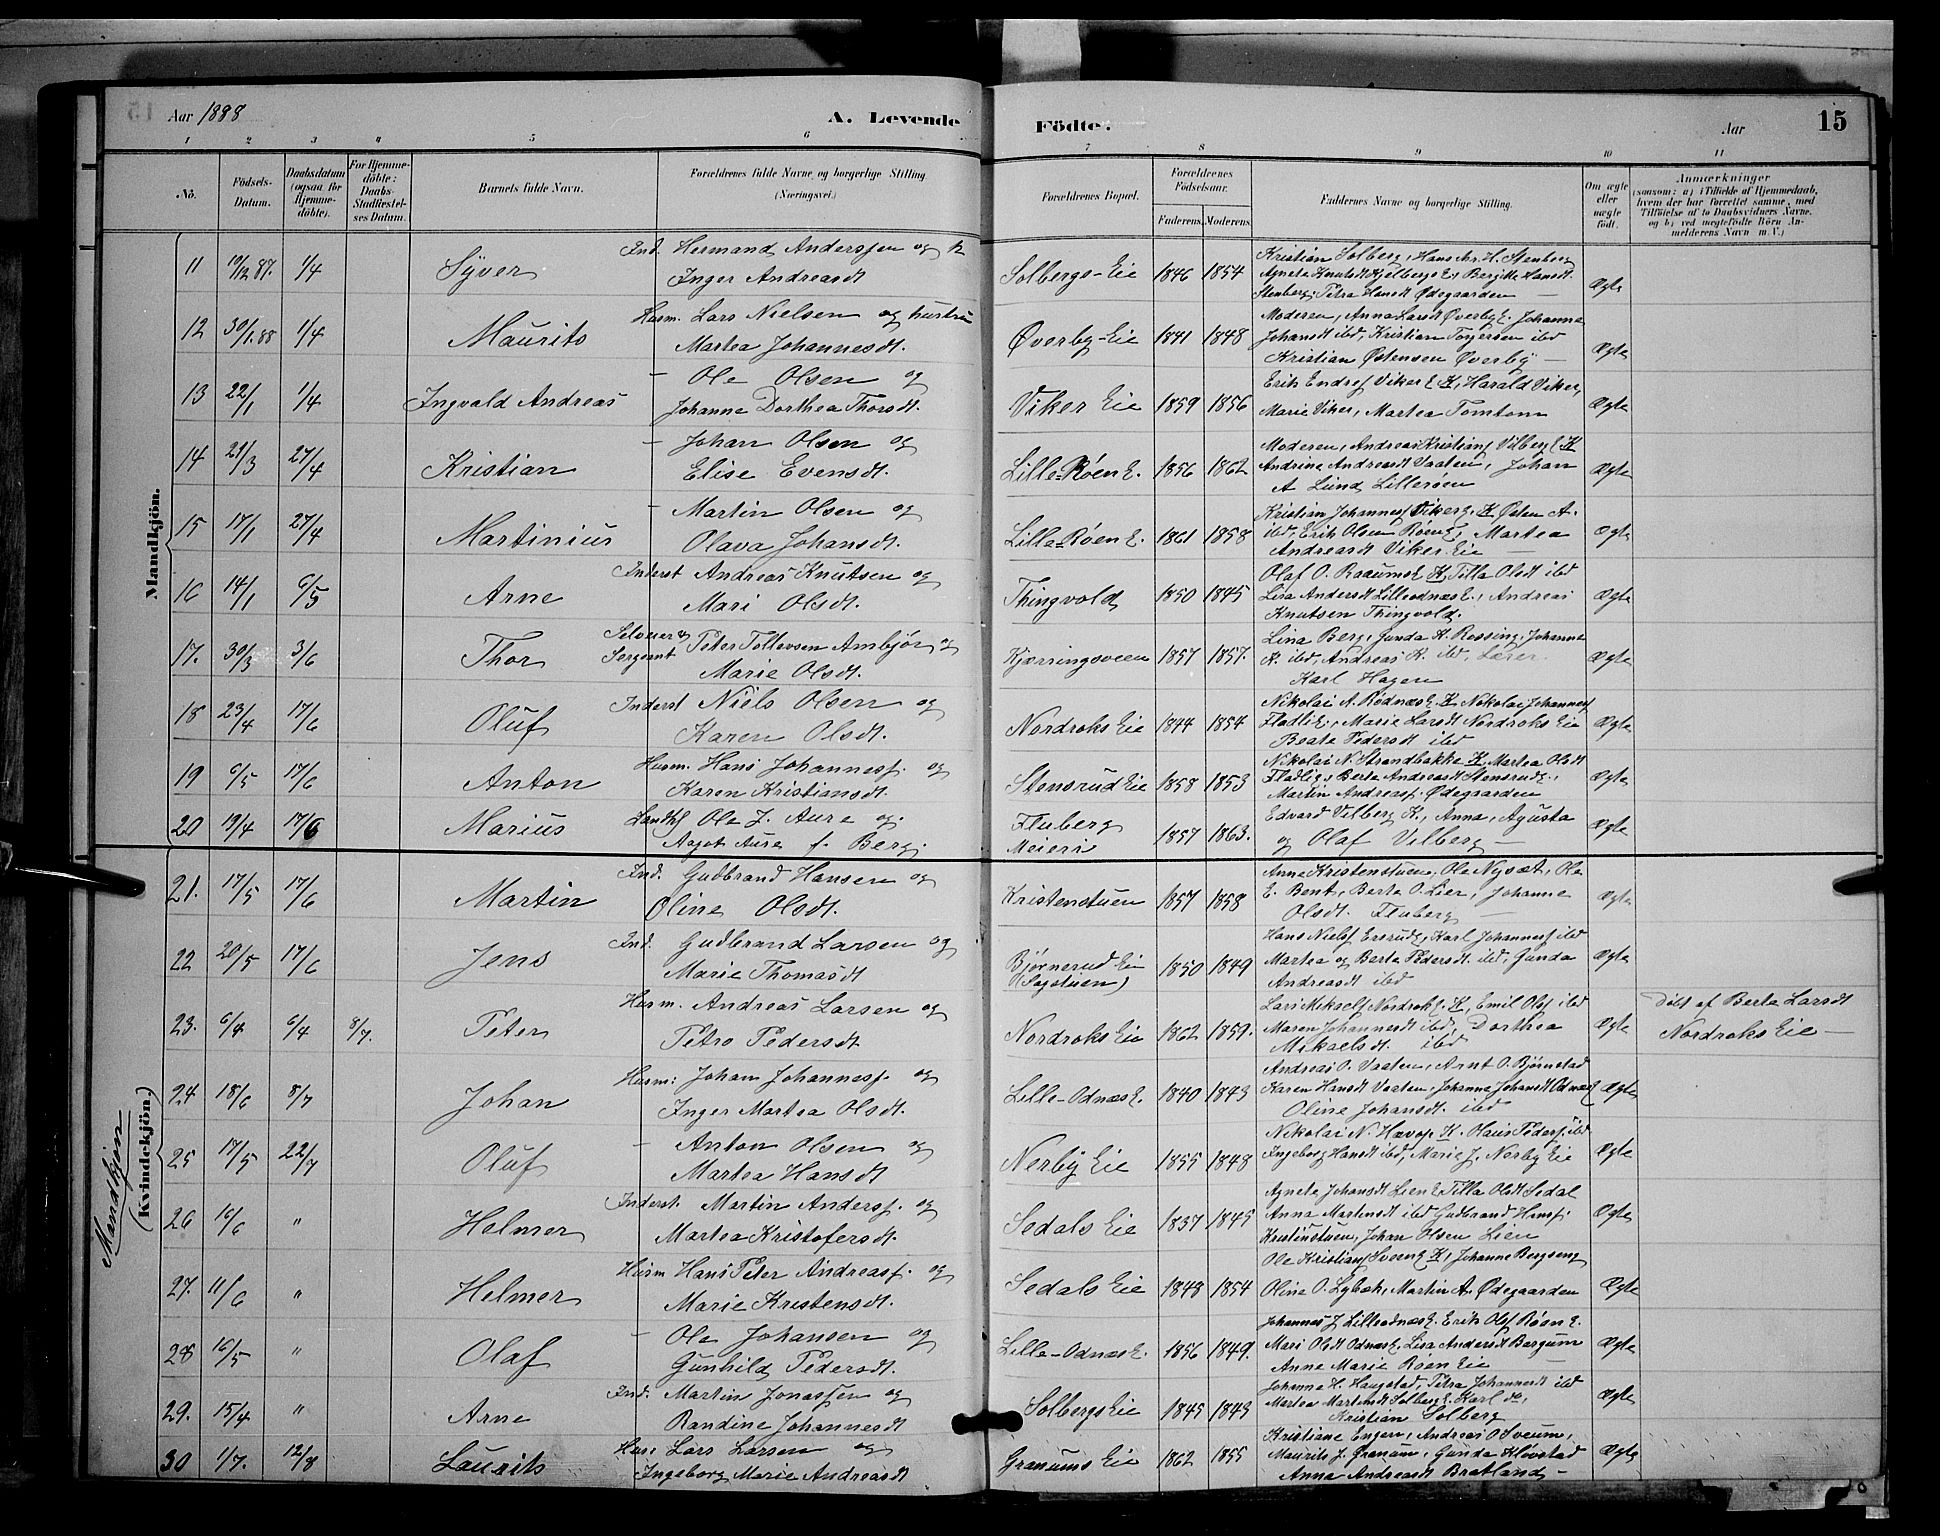 Aar 1888 A. Levende Födte. Aar 15
1 2 3 4 5 6 7 8 9 10 11
No. Födsels-Datum. Daabsdatum (ogsaa for Hjemme-döbte). For Hjemme-döbte: Daabs-Stadfæstelses Datum. Barnets fulde Navn. Forældrenes fulde Navne og borgerlige Stilling (Næringsvei.) Forældrenes Bopæl. Forældrenes Födselsaar. Faderens. Moderens. Faddernes Navne og borgerlige Stilling. Om ægte eller uægte födt. Anmærkninger (saasom: a) i Tilfælde af Hjemmedaab, hvem der har forrettet samme, med Tilföielse af to Daabsvidners Navne, og b) ved uægtefödte Börn Anmelderens Navn m. V.)
Mandkjön.
11 10/12 87. 1/4 Syver Ind. Hermand Anderssen og
Inger Andreasdt Solbergs-Eie 1846 1854 Kristian Solberg, Hans Chr. H. Stenberg
Agnete Knutsdt Kjelbergs E, Bergitte Hansdt.
Stenberg, Petra Hansdt Ødegaarden — Ægte
12 30/1.88 1/4 Maurits Husm. Lars Nielsen og hustru
Martea Johannesdt. Øverby-Eie 1841 1848 Moderen, Anna Larsdt Øverby E. Johanne
Johansdt ibd, Kristian Torjersen ibd
Kristian Østensen Øverby — Ægte
13 22/1 1/4 Ingvald Andreas — Ole Olsen og
Johanne Dorthea Thorsdt. Viker Eie 1859 1856 Erik Endresf Viker E K, Harald Viker,
Marie Viker, Martea Tomtom Ægte
14 21/3 27/4 Kristian — Johan Olsen og
Elise Evensdt. Lille-Røen E. 1856 1862 Moderen, Andreas Kristiansf Vilberg E K
Andrine Andreasdt Vaaten, Johan
A Lund Lillerøen Ægte
15 17/1 27/4 Martinius — Martin Olsen og
Olava Johansdt. Lille-Røen E. 1861 1858 Kristian Johannesf Viker E. K Østen A.
ibd, Erik Olsen Røen E, Martea
Andreasdt Viker Eie — Ægte
16 14/1 6/5 Arne Inderst Andreas Knutsen og
Mari Olsdt. Thingvold 1850 1845 Olaf O. Baaums E K Tilla Olsdt ibd
Lisa Andersdt Lilleodnæs E, Andreas
Knutsen Thingvold. Ægte
17. 30/3 3/6 Thor Selveier & Sergeant Peter Tollevsen Ambjør og
Marie Olsdt. Kjærringsveen 1857 1857. Lina Berg, Gunda H. Rossing, Johanne
H. ibd, Andreas H. ibd, Lærer
Karl Hagen Ægte
18 23/4 17/6 Oluf Inderst Niels Olsen og
Karen Olsdt. Nordroks Eie 1844 1854 Nikolai A. Rødnæs E. K, Nokolai Johannesf
Fladli E, Marie Larsdt Nordroks Eie
Beate Pedersdt ibd Ægte
19 6/5 17/6 Anton Husm. Hans Johannesf. og
Karen Kristiansdt. Stensrud Eie 1858 1853 Nikolai N. Strandbakke K, Martea Olsdt
Fladlie, Berte Andreasdt Stensrud E,
Martin Andreasf. Ødegaarden Ægte
20 19/4 17/6 Marius Landh. Ole J. Aure og
Aagot Aure f. Berg. Fluberg
Meieri 1857 1863. Edvard Vilberg K., Anna, Agusta
og Olaf Vilberg — Ægte
Mandkjøn
(Kvindekjön.)
21. 17/5 17/6 Martin Ind. Gudbrand Hansen og
Oline Olsdt. Kristenstuen 1857 1858 Anne Kristenstuen, Ole Nysæt, Ole
E. Bent, Berte O. Lier, Johanne
Olsdt. Fluberg — Ægte
22 20/5 17/6 Jens Ind. Gudbrand Larsen og
Marie Thomasdt Bjørnerud Eie
(Sagstuen) 1850 1849 Hans Nielsf Ersrud E, Karl Johannesf ibd
Martea og Berte Pedersdt. ibd, Gunda
Andreasdt ibd Ægte
23. 6/4 6/4 8/7. Peter Husm. Andreas Larsen og
Petro Pedersdt Nordroks Eie 1862 1859. Lars Mikaelsf Nordrok E. K, Emil Olsf ibd
Maren Johannesdt ibd, Dorthea
Mikaelsdt. ibd Ægte Døbt af Berte Larsdt
Nordroks Eie —
24 18/6 8/7 Johan Husm: Johan Johannesf. og
Inger Martea Olsdt. Lille-Odnæs E. 1840 1843 Andreas O. Vaaten, Arnt O. Bjørnstad
Karen Hansdt Vaaten, Johanne Johansdt Odnæs E
Oline Johansdt. ibd Ægte
25 17/5 22/7 Oluf — Anton Olsen og
Martea Hansdt Nerby Eie 1855 1848 Nikolai N. Hæve K Olaus Pedersf. ibd
Ingeborg Hansdt ibd, Marie J. Nerby Eie Ægte
26 16/6 " Helmer Inderst. Martin Andersf. og
Martea Kristofersdt. Sedals Eie 1857 1845 Agnete Johansdt Lien E Tilla Olsdt Sedal
Anna Martinsdt ibd Gudbrand Hansf.
Kristinstuen, Johan Olsen Lien Ægte
27. 11/6 " Helmer Husm Hans Peter Andreasf. og
Marie Kristensdt. Sedals Eie 1848 1854 Ole Kristiansf Sveen E K, Johanne Bergseng
Oline O. Lybæk, Martin A. Ødegaarden Ægte
28 16/5 " Olaf — Ole Johansen og
Gunhild Pedersdt. Lille-Odnæs E. 1856 1849. Johannes J. Lilleodnæs E. Erik Olsf Røen E.
Mari Olsdt Odnæs E. Lisa Andersdt Bergum
Anne Marie Roen Eie — Ægte
29. 15/4 " Arne Ind. Martin Jonassen og
Randine Johannesdt Solbergs Eie 1845 1843 Johanne H. Haugstad, Petra Johannesdt ibd
Martea Martinsdt Solberg E. Karl do,
Kristian Solberg Ægte
30 1/7. 12/8 Laurits Hus: Lars Larsen og
Ingeborg Marie Andreasdt Granums Eie 1862 1855 Kristiane Engen, Andreas O Sveum,
Maurits J. Granum, Gunda Kløvstad
Anna Andreasdt Bratland — Ægte